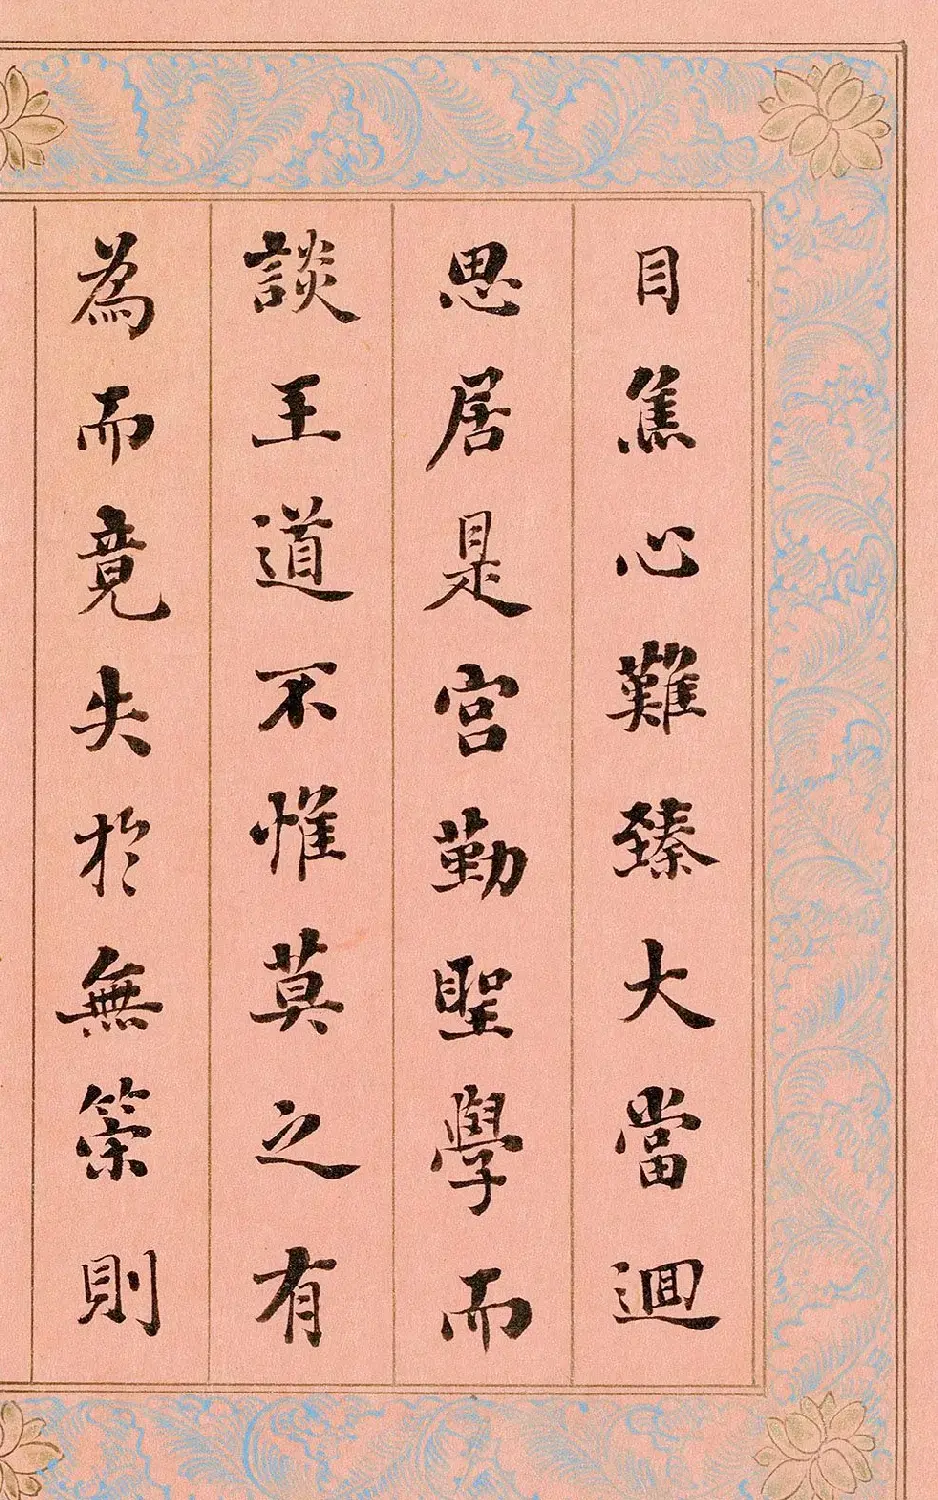 目焦心難臻大當迴
思居是宮勤聖學而
談王道不惟莫之有
為而竟失於無策則